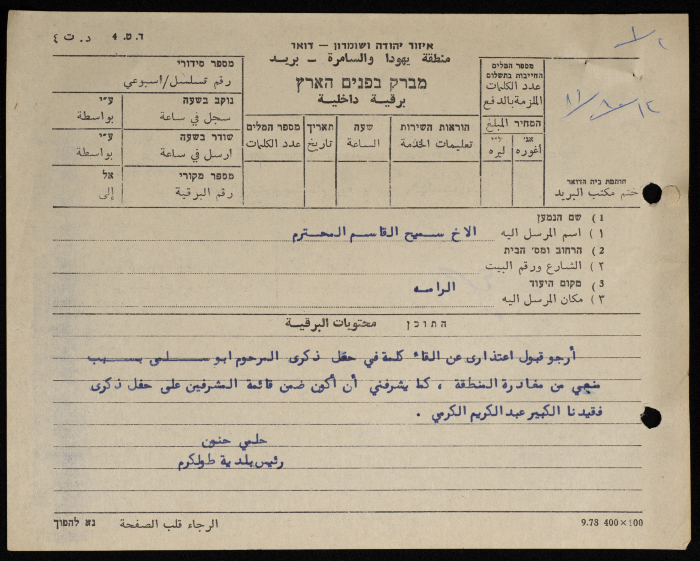 ד. ט. 4 د. ت ٤
איזור יהודה ושומרון – דואר
منطقة يهودا والسامرة – بريد
מברק בפנים הארץ
برقية داخلية
מספר סידורי
رقم تسلسل/اسبوعي
נוקב בשעה ע״י
سجل في ساعة بواسطة
שודר בשעה ע״י
ارسل في ساعة بواسطة
מספר מקורי אל
رقم البرقية إلى
מספר המלים
عدد الكلمات
תאריך
تاريخ
שעה
الساعة
הוראות השירות
تعليمات الخدمة
מספר המלים
החייבות בתשלום
عدد الكلمات
الملزمة بالدفع
המחיר المبلغ
אג׳ ל״י
أغوره ليره
١٢/٨٠/٨١
חותמת בית הדואר
ختم مكتب البريد
1 ) שם הנמען
١ ) اسم المرسل اليه الاخ سميح القاسم المحترم
2 ) הרחוב ומס׳ הבית
٢ ) الشارع ورقم البيت
3 ) מקום היעוד
٣ ) مكان المرسل اليه الرامه
התוכן محتويات البرقية
أرجو قبول اعتذاري عن القاء كلمة في حفل ذكرى المرحوم ابو سلمى بسبب
منعي من مغادرة المنطقة ، كما يشرفني أن أكون ضمن قائمة المشرفين على حفل ذكرى
فقيدنا الكبير عبد الكريم الكرمي .
حلمي حنون
رئيس بلدية طولكرم
נא להפוך الرجاء قلب الصفحة
9.78 400×100